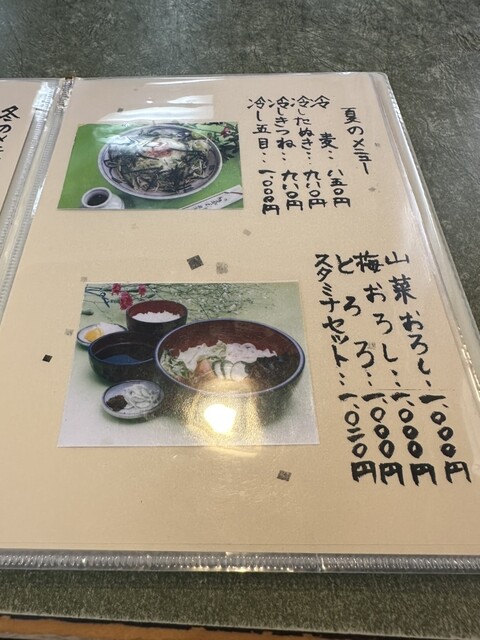 夏のメニュー
冷麦‥八五〇円
冷したぬき‥九一〇円
冷しきつね‥九一〇円
冷し五目‥一、〇〇〇円
山菜おろし‥一、〇〇〇円
梅おろし‥一、〇〇〇円
とろろ‥一、〇〇〇円
スタミナセット‥一、〇二〇円
冬のメ